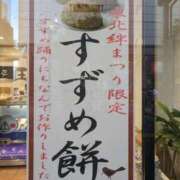 東北絆まつり限定
すずめ餅
すずめ踊りにちなんでお作りしました